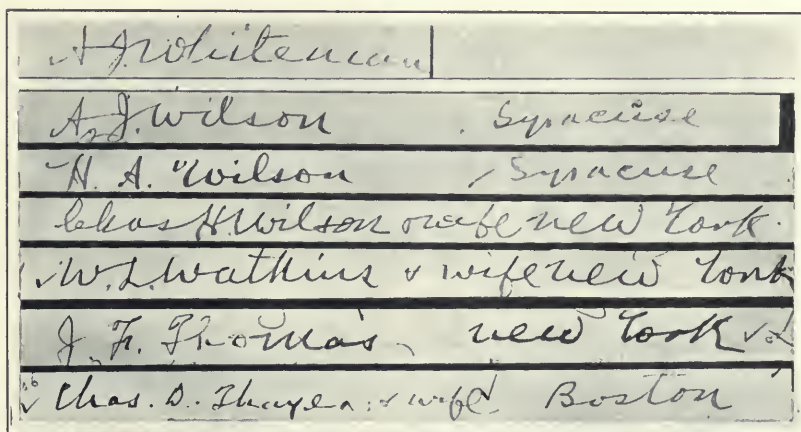 A J Whiteman
A. J. Wilson Syracuse
H. A. Wilson Syracuse
Chas H. Wilson & wife New York.
W. L. Watkins & wife New York
J. F. Thomas. New York
Chas. D. Thayer & wife. Boston